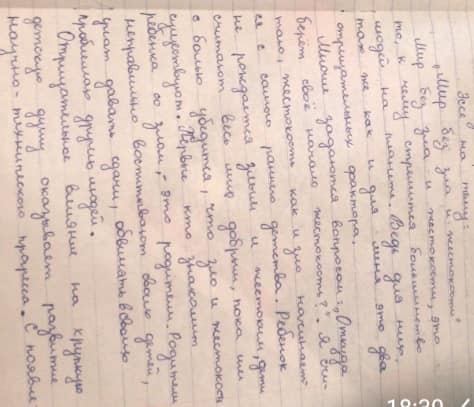 Эссе на тему:
„Мир без зла и жестокости"
Мир без зла и жестокости, это
то, к чему стремится большинство
людей на планете. Ведь для них,
так же как и для меня это два
отрицательных фактора.
Многие задаются вопросом: „Откуда
берёт своё начало жестокость?". Я счи-
таю, жестокость как и зло начинает-
ся с самого раннего детства. Ребёнок
не рождается злым и жестоким, дети
считают весь мир добрым, пока им
с болью убедится, что зло и жестокость
существуют. Первые кто знакомит
ребёнка со злом, - это родители. Родители
неправильно воспитывают своих детей,
учат давать сдачи, обвинять в своих
проблемах других людей.
Отрицательное влияние на хрупкую
детскую душу оказывает развитие
научно-технического прогресса. С появле
18:20